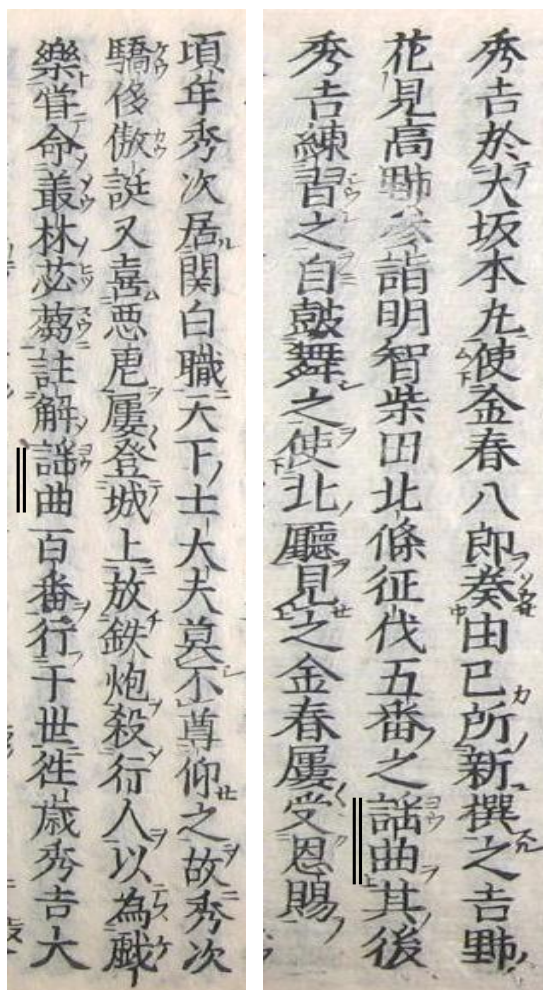 秀吉於大坂本丸使金春八郎奏由已所新撰之吉野
花見高野参詣明智柴田北條征伐五番之謡曲其後
秀吉練習之自鼓舞之使北廳見之金春屢受恩賜
頃年秀次居関白職天下士大夫莫不尊仰之故秀次
驕侈傲誕又喜悪虐屢登城上放鉄炮殺行人以為戯
樂甞命叢林苾蒭註解謡曲百番行于世徃歳秀吉大